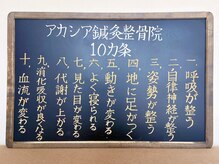 アカシア鍼灸整骨院
10カ条
一.呼吸が整う
二.自律神経が整う
三.姿勢が整う
四.地に足がつく
五.動きが変わる
六.よく寝られる
七.見た目が変わる
八.代謝が上がる
九.消化吸収が良くなる
十.血流が変わる